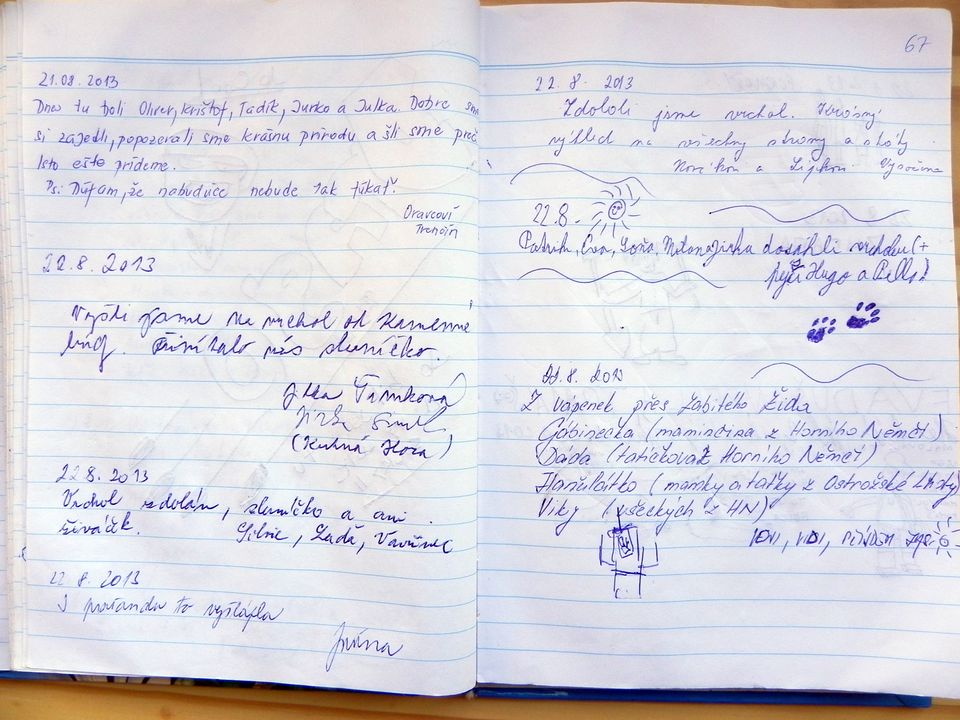 21.08.2013
Dnes tu boli Oliver, Krištof, Tadik, Jurko a Julka. Dobre sme
si zajedli, popozerali sme krásnu prírodu a šli sme preč
Isto ešte prídeme.
Ps: Dúfam, že nabudúce nebude tak fúkať.
Oravcoví
Trenčín
22.8.2013
Vyšli jsme na vrchol od Kamenné
búdy. Přivítalo nás sluníčko.
Jitka Šimková
(Kutná Hora)
22.8.2013
Vrchol zdolán, sluníčko a ani
živáček. Láďa, Vavřinec
22.8.2013
I pořandu to vyšlápla
67
22.8. 2013
Zdolali jsme vrchol. Krásný
výhled na všechny strany a
a Vysočina
22.8.
Patrik, Eva, dosáhli vrcholu (+
Hugo a
8. 2013
Z vápenek přes Zabitého Žida
Gábinečka (maminčina z Horního Němčí)
Dáda (tatíčkova z Horního Němčí)
(mamky a taťky z Ostrožské Lhoty)
Viky (všeckých z HN)